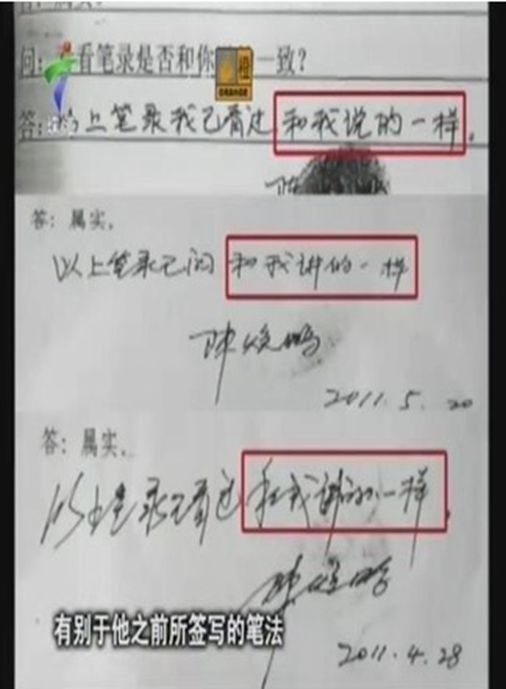 问：看笔录是否和你一致？
橙
ORANGE
答：以上笔录我已看过和我说的一样。
陈
答：属实。
以上笔录已阅和我讲的一样
陈焕鹏
2011.5.20
答：属实。
以上笔录已看过和我讲的一样。
陈焕鹏
有别于他之前所签写的笔法
2011.4.28